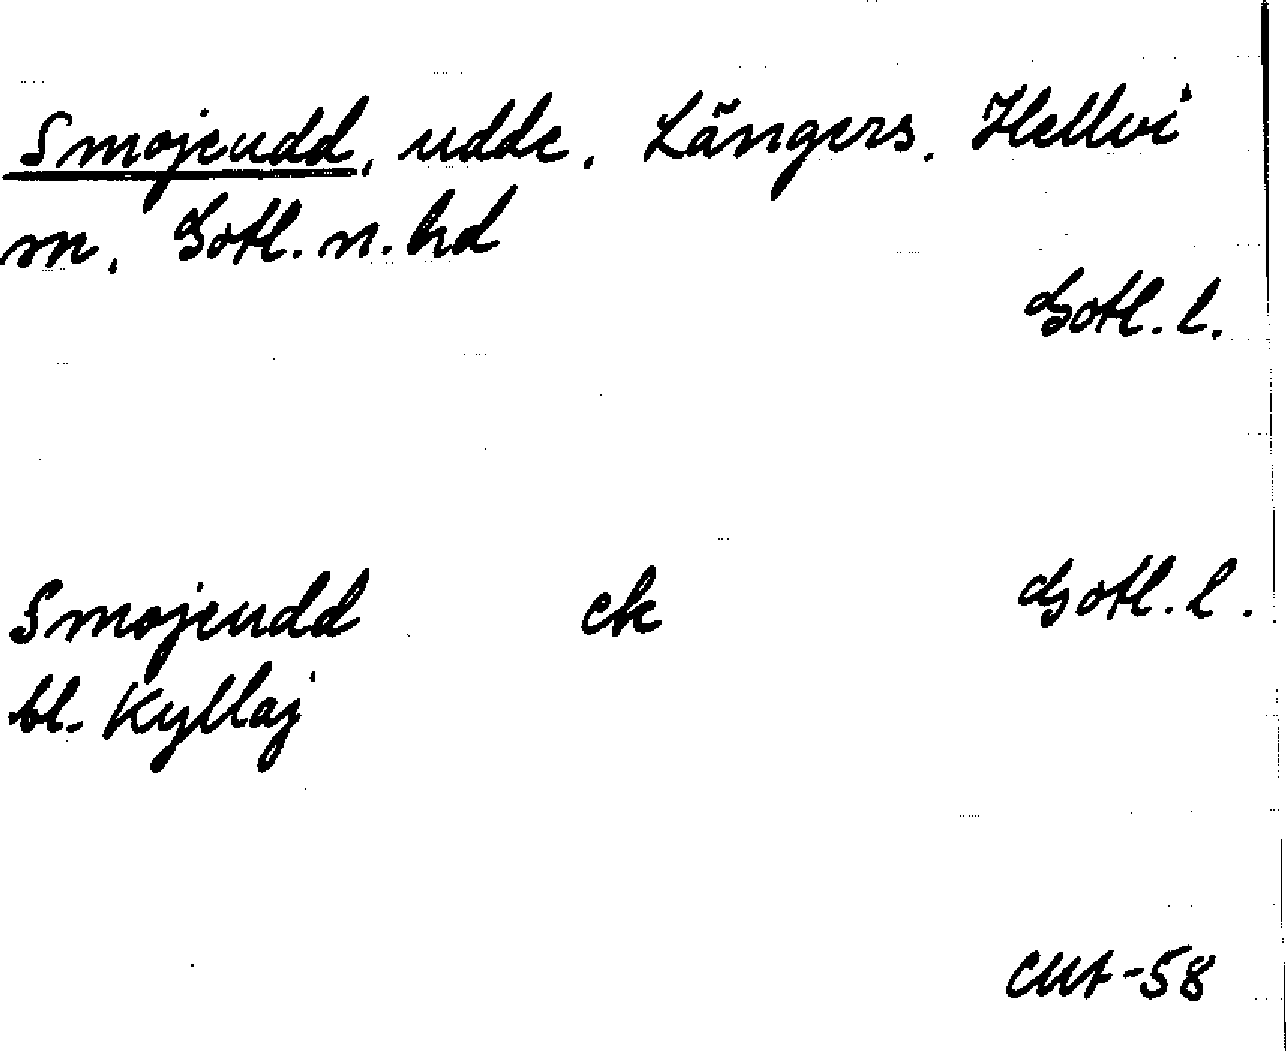 Smojeudd, udde. Längers. Hellvi
m. Gotl. n. hd
Gotl. l.
Smojeudd ek Gotl. l.
bl. Kyllaj
CMA-58